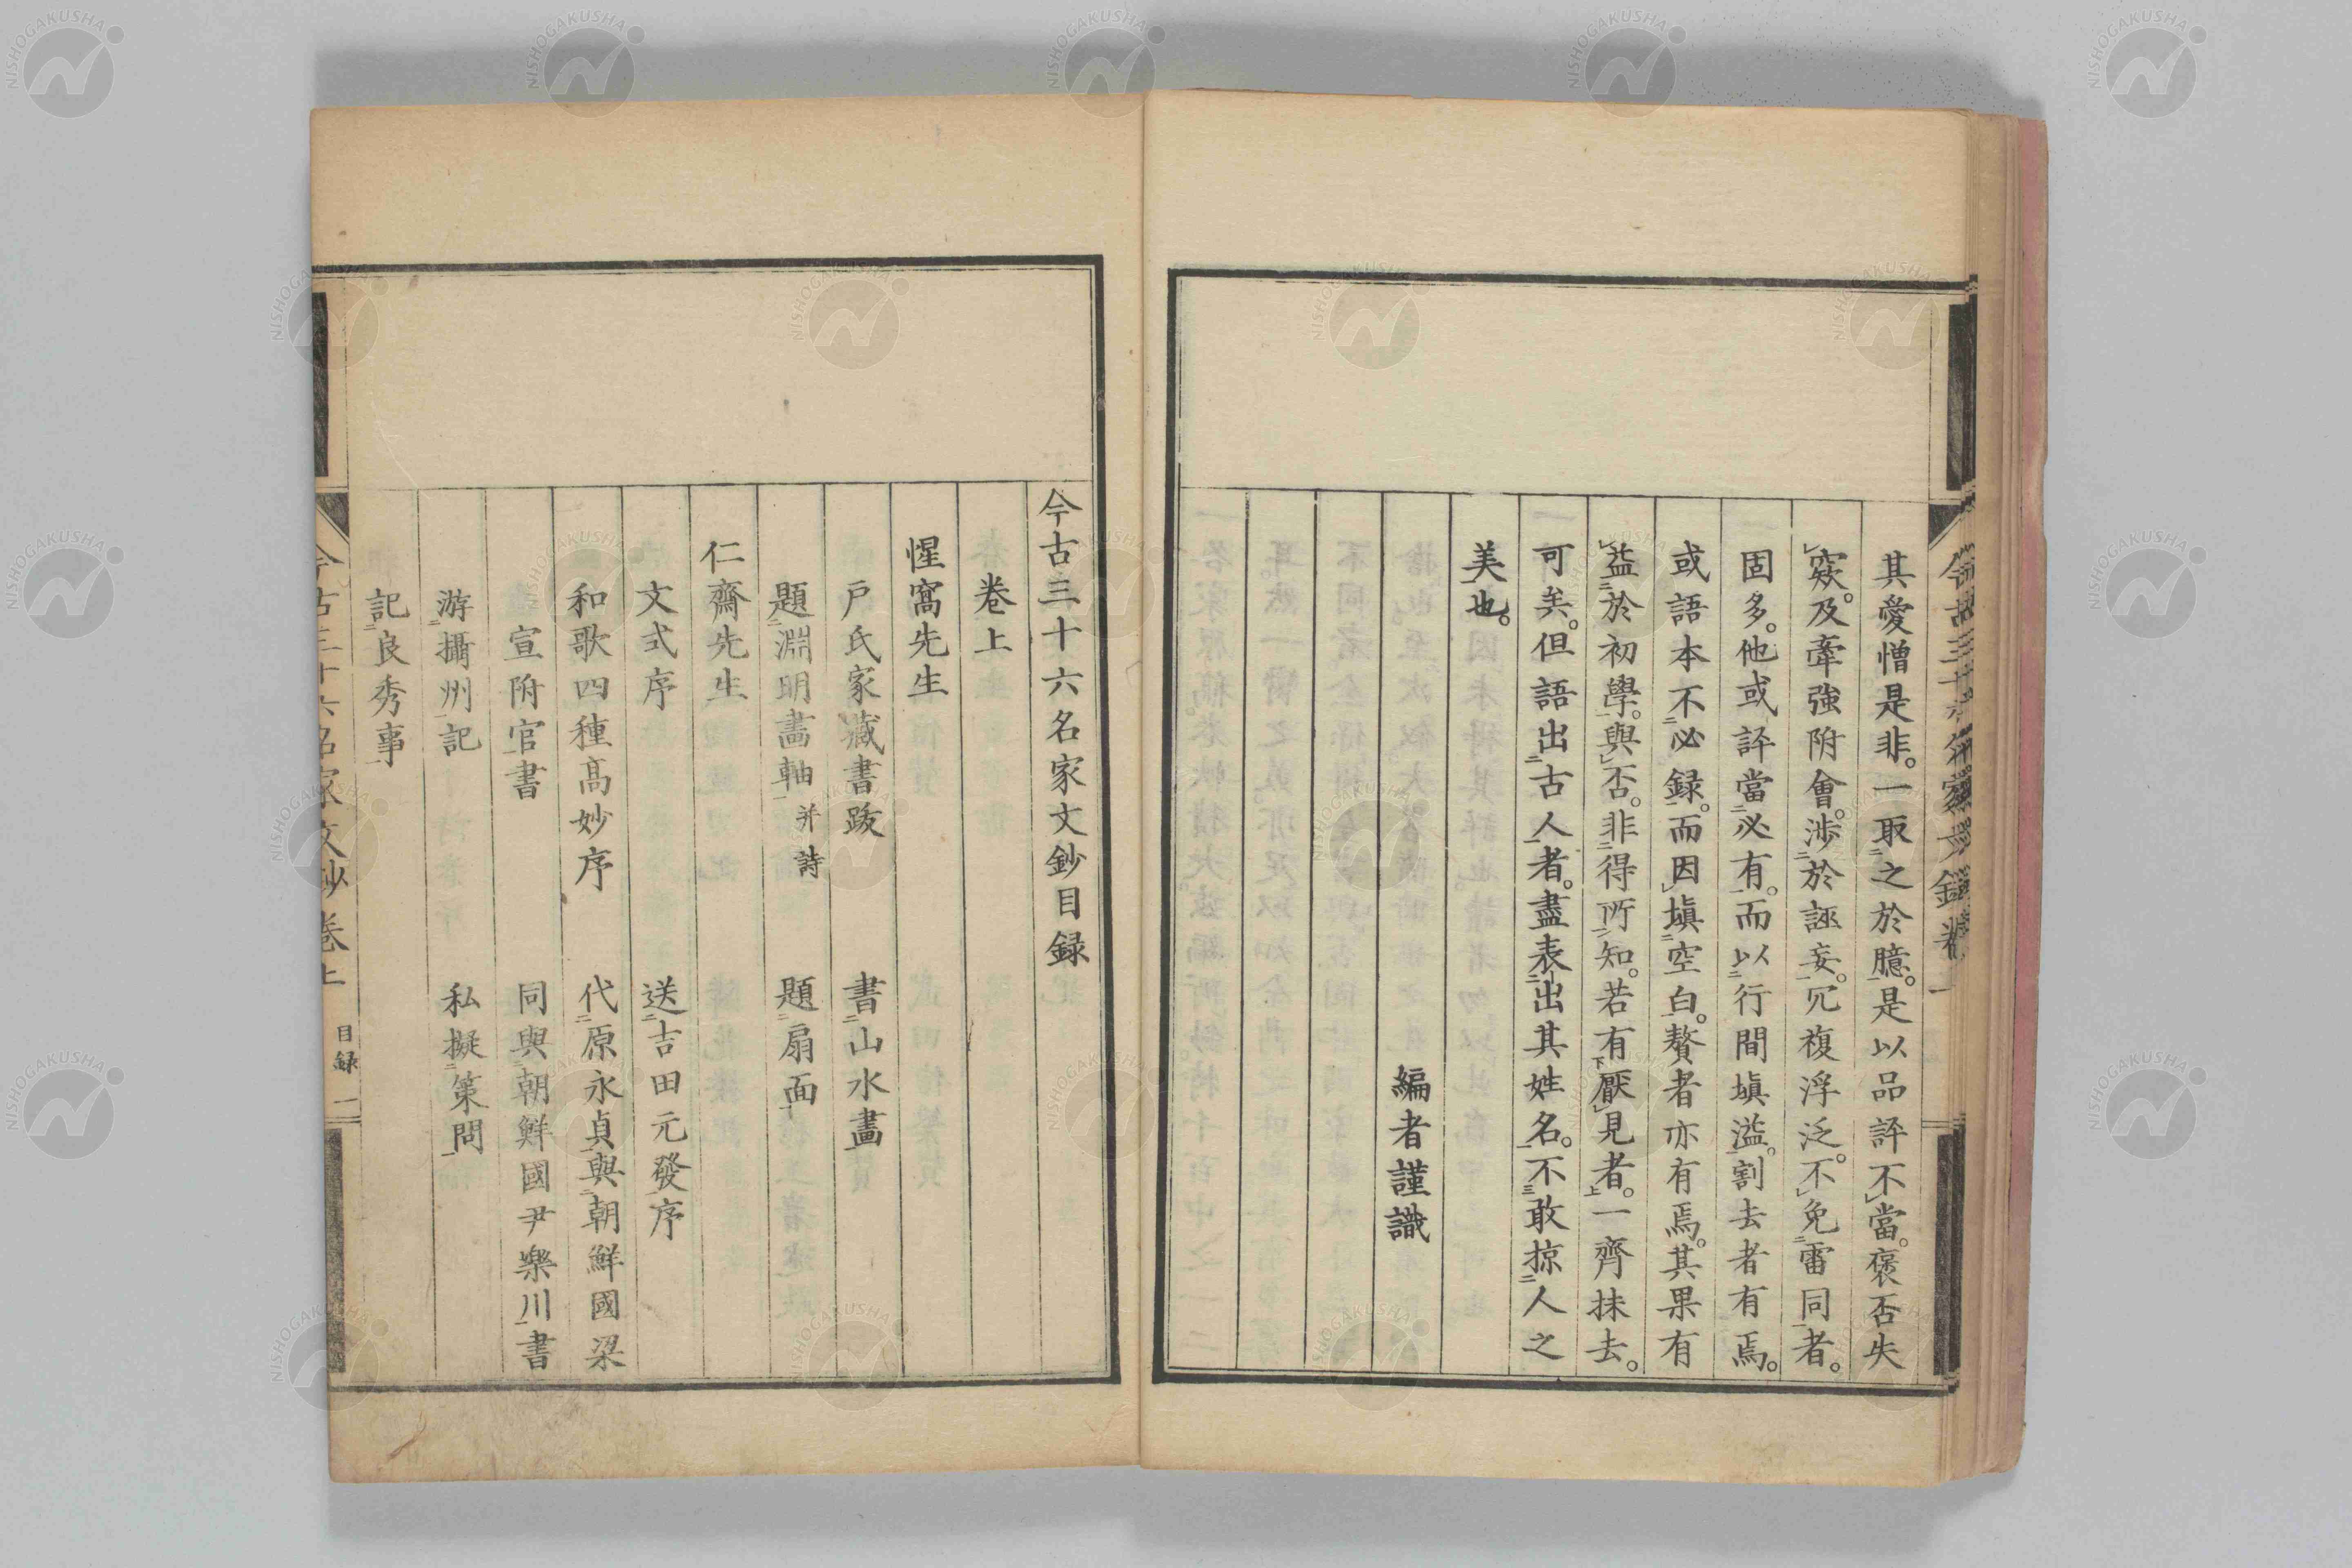 其愛憎是非。一取之於臆。是以品評不當。褒否失
窾。及牽強附會。涉於誣妄。冗複浮泛。不免雷同者。
固多。他或評當必有。而以行間塡溢。割去者有焉。
或語本不必録。而因塡空白。贅者亦有焉。其果有
益於初學。與否。非得所知。若有厭見者。一齊抹去。
可矣。但語出古人者。盡表出其姓名。不敢掠人之
美也。
編者謹識
今古三十六名家文鈔目録
卷上
惺窩先生
戸氏家藏書跋　書山水畫
題淵明畫軸并詩　題扇面
仁齋先生
文式序　送吉田元發序
和歌四種高妙序　代原永貞與朝鮮國梁
宣附官書　同與朝鮮國尹樂川書
游攝州記　私擬策問
記良秀事
今古三十六名家文鈔卷上　目録　二
NISHOGAKUSHA